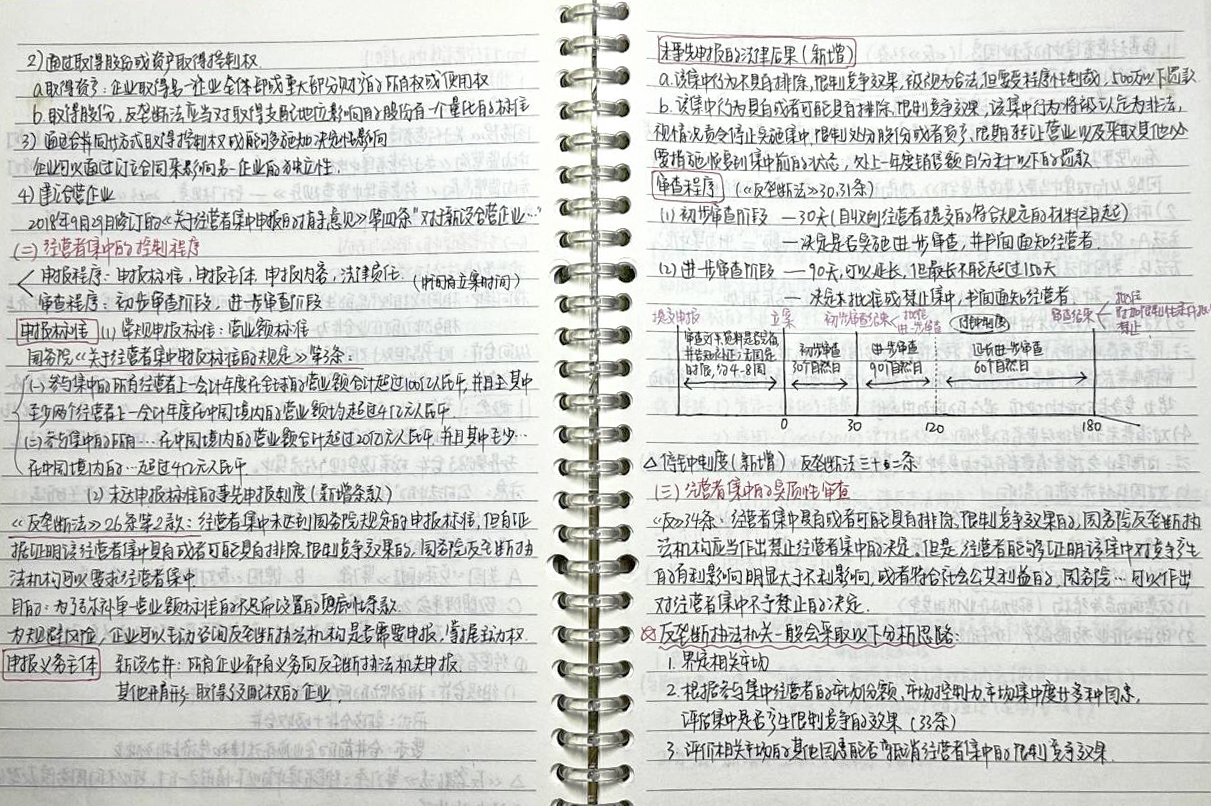 2) 通过取得股份或资产取得控制权
a.取得资产:企业取得另一企业全体部或重大部分财产的所有权或使用权
b.取得股份,反垄断法应当对取得支配地位影响的股份有一个量化的标准
3) 通过合同方式取得控制权或能够施加决定性影响
企业可以通过订立合同来影响另一企业的独立性.
4) 建立合营企业
2018年9月29日修订的《关于经营者集中申报的指导意见》第四条"对于新设合营企业…"
(二) 经营者集中的控制程序
申报程序:申报标准,申报主体,申报内容,法律责任
(时间自立案时间)
审查程序:初步审查阶段,进一步审查阶段
申报标准 (1) 常规申报标准:营业额标准
国务院《关于经营者集中申报标准的规定》第3条:
(一) 参与集中的所有经营者上一会计年度在全球的营业额合计超过100亿人民币,并且其中
至少两个经营者上一会计年度在中国境内的营业额均超过4亿元人民币.
(二) 参与集中的所有…在中国境内的营业额合计超过20亿元人民币,并且其中至少…
在中国境内的…超过4亿元人民币
(2) 未达申报标准的事先申报制度(新增条款)
《反垄断法》26条第2款:经营者集中未达到国务院规定的申报标准,但有证
据证明该经营者集中具有或者可能具有排除、限制竞争效果的,国务院反垄断执
法机构可以要求经营者集中
目的:为了弥补单一营业额标准的不足而设置的兜底性条款.
为规避反应,企业可以主动咨询反垄断执法机构是否需要申报,掌握主动权.
申报义务主体 新设合并:所有企业都有义务向反垄断执法机关申报.
其他情形:取得支配权的企业.
未事先申报的法律后果(新增)
a.该集中行为不具有排除、限制竞争效果,被视为合法,但需要程序性制裁,500万以下罚款.
b.该集中行为具有或者可能具有排除、限制竞争效果,该集中行为将被认定为非法,
视情况责令停止实施集中、限期处分股份或者资产、限期转让营业以及采取其他必
要措施恢复到集中前的状态,处上一年度销售额百分之十以下的罚款
审查程序 (《反垄断法》30、31条)
(1) 初步审查阶段 —30天(自收到经营者提交的符合规定的材料之日起)
—决定是否实施进一步审查,并书面通知经营者.
(2) 进一步审查阶段 —90天,可以延长,但最长不能超过150天
—决定不批准或禁止集中,书面通知经营者
提交申报 立案 初步审查结果 批准 进一步审查 停钟制度 审查结果 批准 附加限制性条件批准 禁止
审查文件、资料是否完备,并告知补正;法无固定时限,约4-8周
初步审查 30个自然日
进一步审查 90个自然日
延长进一步审查 60个自然日
0 30 120 180
△ 停钟制度(新增) 反垄断法三十二条
(三) 经营者集中的实质性审查
《反》34条:经营者集中具有或者可能具有排除、限制竞争效果的,国务院反垄断执
法机构应当作出禁止经营者集中的决定,但是,经营者能够证明该集中对竞争产生
的有利影响明显大于不利影响,或者符合社会公共利益的,国务院…可以作出
对经营者集中不予禁止的决定.
☆反垄断执法机关一般会采取以下分析思路:
1. 界定相关市场
2. 根据参与集中经营者的市场份额、市场控制力、市场集中度等多种因素,
评估集中是否产生限制竞争的效果(33条)
3. 评价相关市场的其他因素能否抵消经营者集中的限制竞争效果.